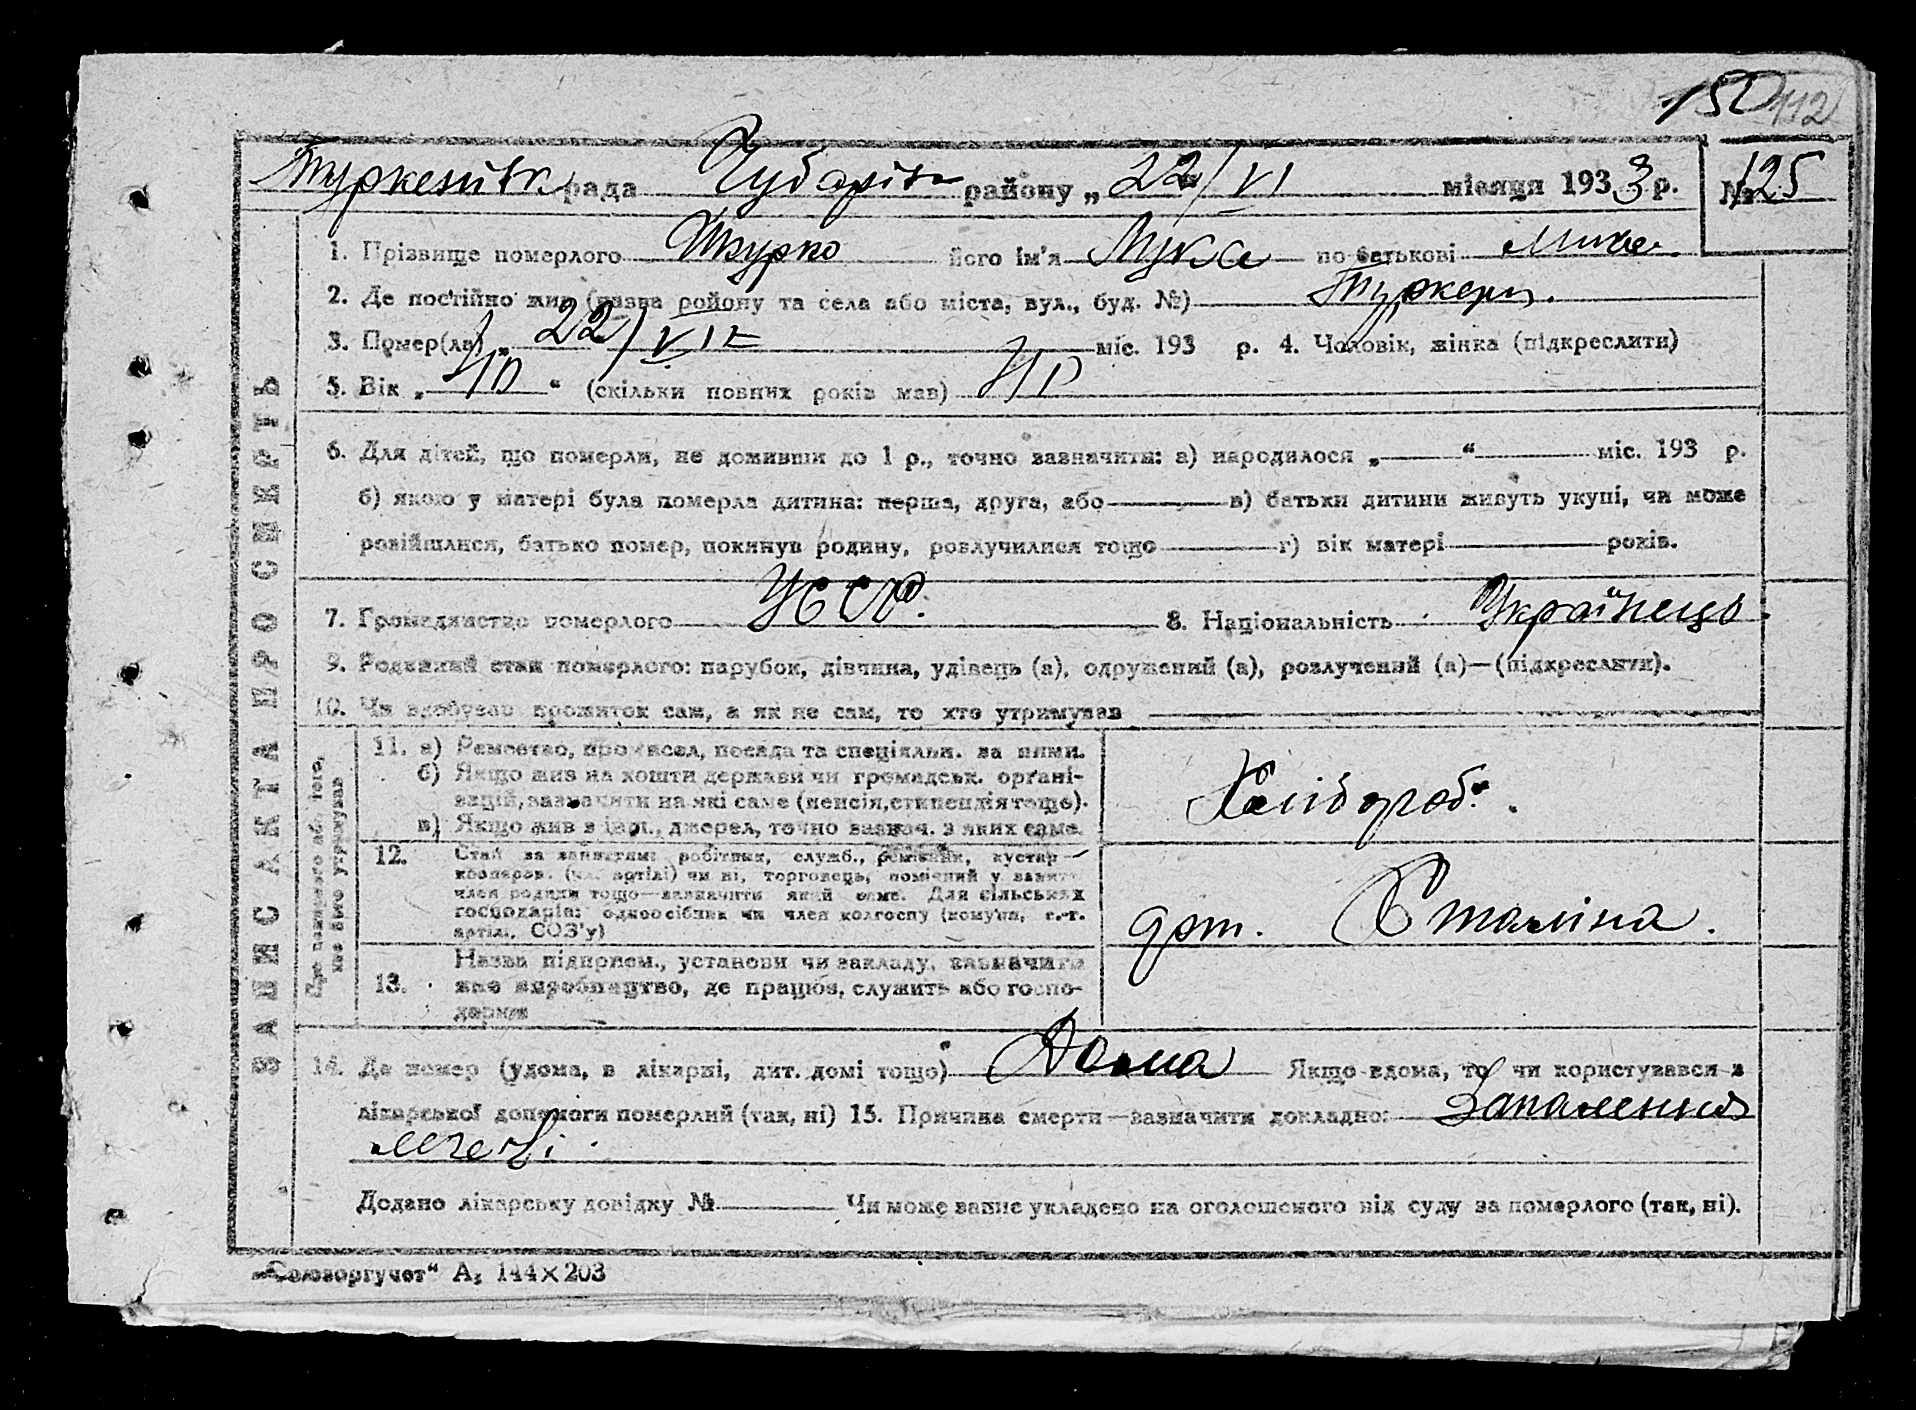 150 112
Туркенівк рада Чубарівк району „ 22 / VI місяця 193 3 р. № 125
1. Прізвище померлого його ім'я Лука по батькові
2. Де постійно жив (назва району та села або міста, вул., буд. №)
3. Помер(ла) „ 22 / міс. 193 р. 4. Чоловік, жінка (підкреслити)
5. Вік „ “ (скільки повних років мав)
6. Для дітей, що померли, не доживши до 1 р., точно зазначити: а) народилося „ “ міс. 193 р.
б) якою у матері була померла дитина: перша, друга, або в) батьки дитини живуть укупі, чи може
розійшлися, батько помер, покинув родину, розлучилися тощо г) вік матері років.
7. Громадянство померлого УССР. 8. Національність Українець
9. Родинний стан померлого: парубок, дівчина, удівець (а), одружений (а), розлучений (а)—(підкреслити).
10. Чи здобував прожиток сам, а як не сам, то хто утримував
ЗАПИС АКТА ПРО СМЕРТЬ
Про померлого або того, хто його утримував
11. а) Ремество, промисел, посада та спеціяльн. за ними.
б) Якщо жив на кошти держави чи громадськ. органі-
зацій, зазначити на які саме (пенсія, стипендія тощо).
в) Якщо жив з інш. джерел, точно зазнач. з яких саме.
Хлібороб.
12. Стан за заняттям: робітник, служб., ремісник, кустар
кооперов. (чл. артілі) чи ні, торговець, помічний у занятт
член родини тощо—зазначити який саме. Для сільських
господарів: одноосібник чи член колгоспу (комуни, с.-г.
артілі, СОЗ'у)
арт. Сталіна.
13. Назва підприєм., установи чи закладу, зазначити
яке виробництво, де працюв, служить або госпо-
дарює
14. Де помер (удома, в лікарні, дит. домі тощо) Дома Якщо вдома, то чи користувався з
лікарської допомоги померлий (так, ні) 15. Причина смерти—зазначити докладно: Запалення
Додано лікарську довідку № Чи може запис укладено на оголошеного від суду за померлого (так, ні).
А₅ 144×203